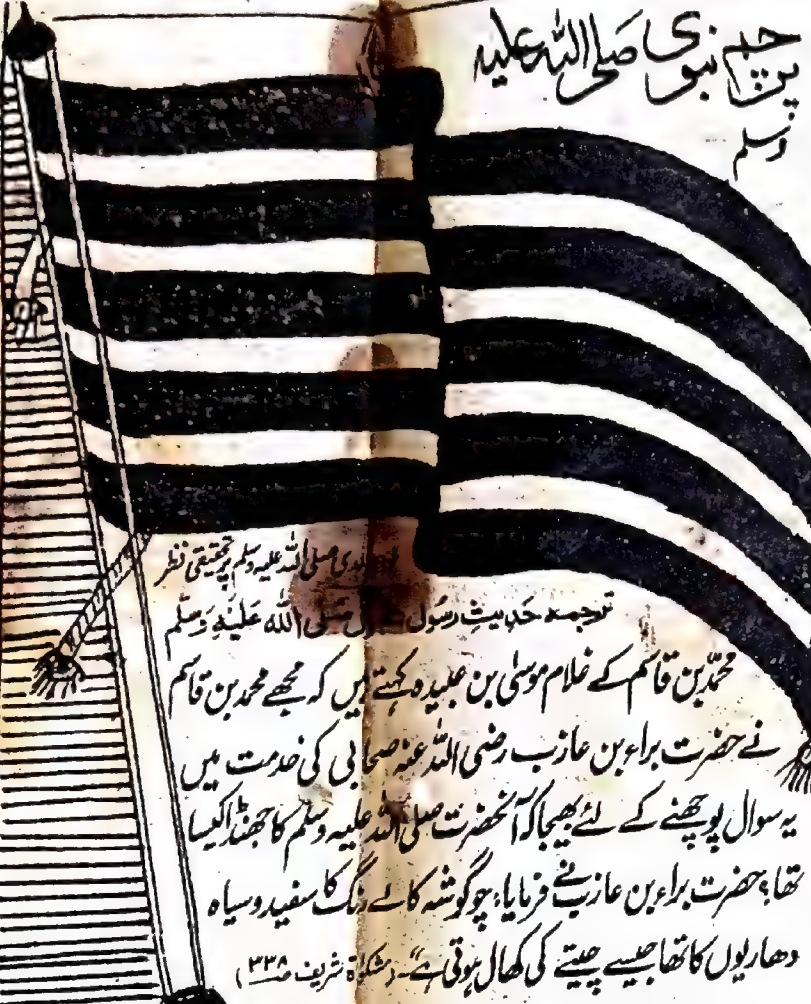 پرچم نبوی صلی اللہ علیہ
وسلم
صلی اللہ علیہ وسلم پر تحقیقی نظر
ترجمہ حدیثِ رسول صلی اللہ علیہ وسلم
محمد بن قاسم کے غلام موسیٰ بن عبیدہ کہتے ہیں کہ مجھے محمد بن قاسم
نے حضرت براء بن عازب رضی اللہ عنہ صحابی کی خدمت میں
یہ سوال پوچھنے کے لئے بھیجا کہ آنحضرت صلی اللہ علیہ وسلم کا جھنڈا کیسا
تھا؟ حضرت براء بن عازب نے فرمایا: چوگوشہ کالے رنگ کا سفید و سیاہ
دھاریوں کا تھا جیسے چیتے کی کھال ہوتی ہے"۔ (مشکوٰۃ شریف ص ۳۳۸)